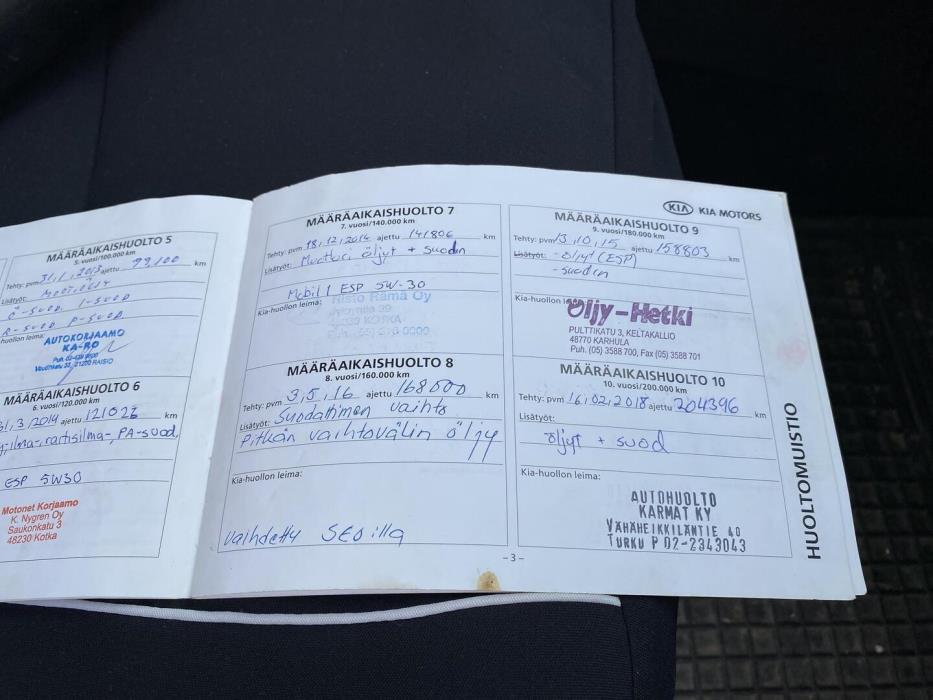 MÄÄRÄAIKAISHUOLTO 5
5. vuosi/100.000 km
Tehty: pvm 31,1,2013 ajettu 99,100 km
Lisätyöt:
Ö-SUOD. I-SUOD
R-SUOD P-SUOD.
huollon leima:
AUTOKORJAAMO
KA-RO
21200 RAISIO
MÄÄRÄAIKAISHUOLTO 6
6. vuosi/120.000 km
31,3/2014 ajettu 121022 km
-ilma-, raitisilma-, PA-suod,
ESP 5W30
Motonet Korjaamo
K. Nygren Oy
Saukonkatu 3
48230 Kotka
MÄÄRÄAIKAISHUOLTO 7
7. vuosi/140.000 km
Tehty: pvm 18,12,2014 ajettu 141806 km
Lisätyöt: Moottori öljyt + suodin
Mobil 1 ESP 5W-30
Kia-huollon leima:
Risto Rämä Oy
KOTKA
MÄÄRÄAIKAISHUOLTO 8
8. vuosi/160.000 km
Tehty: pvm 3,5,16 ajettu 168000 km
Lisätyöt: Suodattimen vaihto
Pitkän vaihtovälin öljy
Kia-huollon leima:
Vaihdettu SEOilla
KIA KIA MOTORS
MÄÄRÄAIKAISHUOLTO 9
9. vuosi/180.000 km
Tehty: pvm 13,10,15 ajettu 158803 km
Lisätyöt: -öljyt (ESP)
-suodin
Kia-huollon leima:
Öljy-Hetki
PULTTIKATU 3, KELTAKALLIO
48770 KARHULA
Puh. (05) 3588 700, Fax (05) 3588 701
MÄÄRÄAIKAISHUOLTO 10
10. vuosi/200.000 km
Tehty: pvm 16,02,2018 ajettu 204396 km
Lisätyöt:
öljyt + suod
Kia-huollon leima:
AUTOHUOLTO
KARMAT KY
VÄHÄHEIKKILÄNTIE 40
TURKU P 02-2343043
-3-
HUOLTOMUISTIO